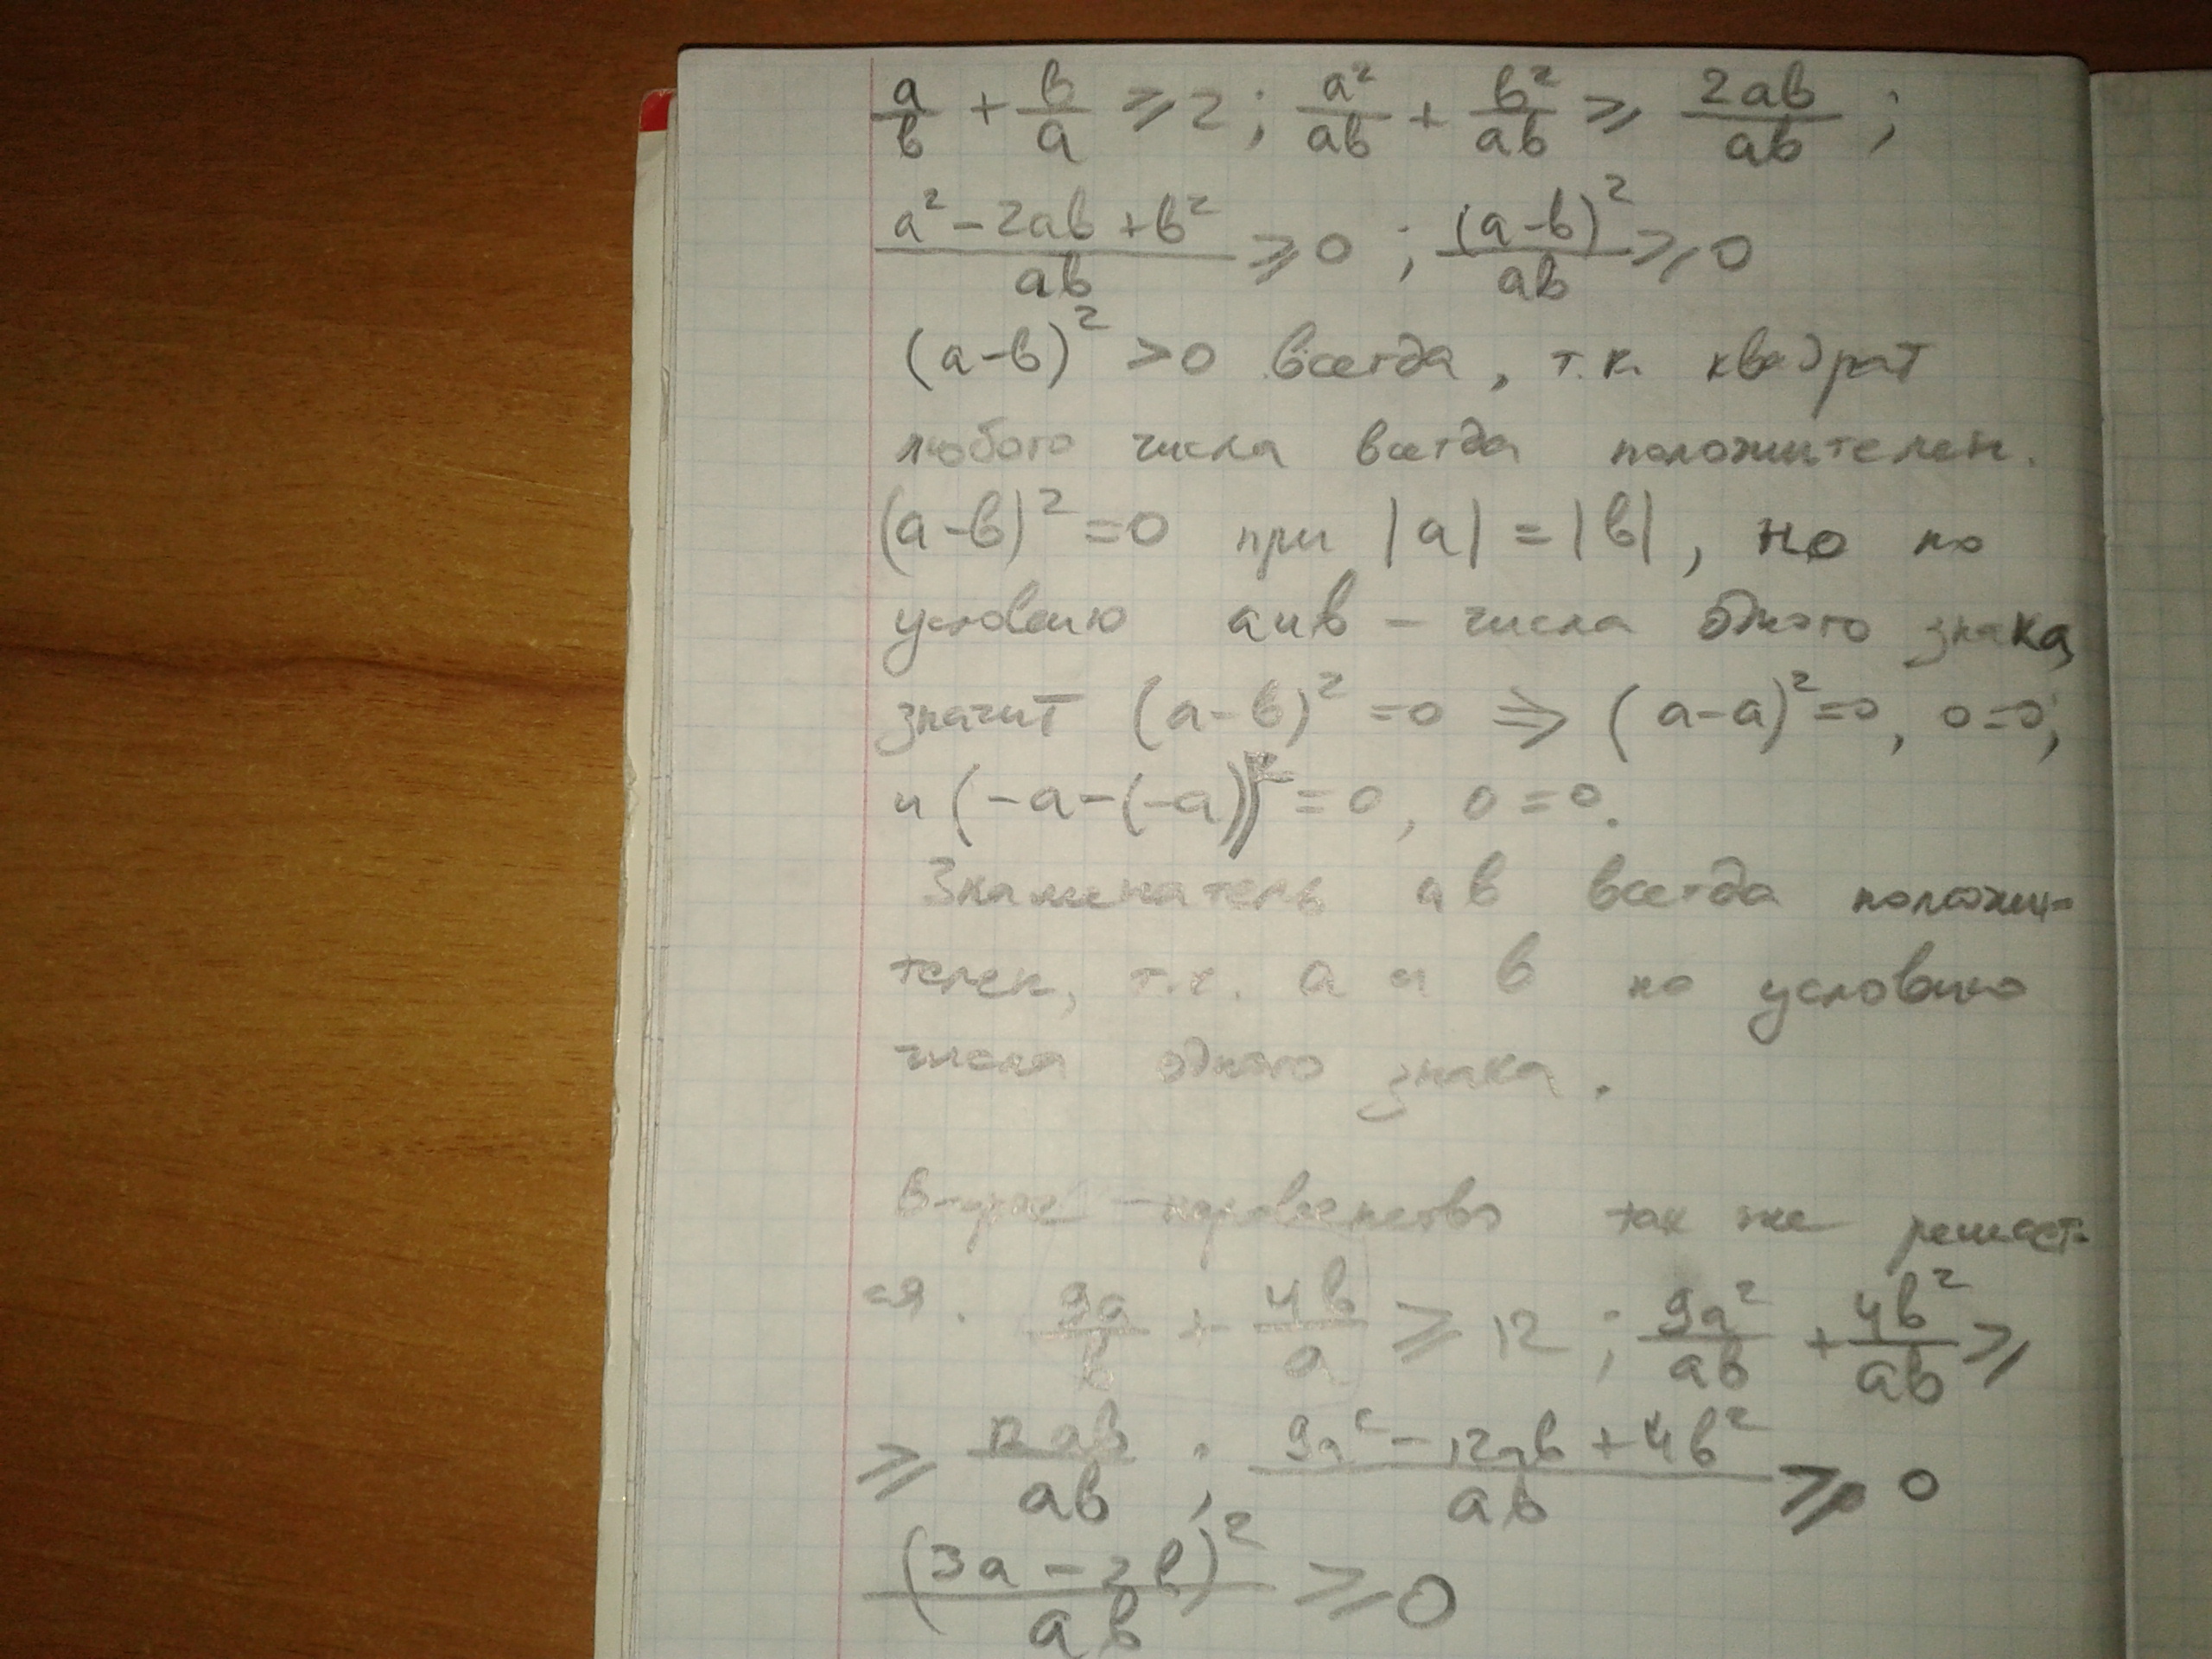 a/в + в/a ⩾ 2; a²/aв + в²/aв ⩾ 2aв/aв;
(a² - 2aв + в²)/aв ⩾ 0; (a-в)²/aв ⩾ 0
(a-в)² > 0 всегда, т.к. квадрат
любого числа всегда положителен.
(a-в)² = 0 при |a| = |в|, но по
условию a и в – числа одного знака,
значит (a-в)² = 0 ⇒ (a-a)² = 0, 0=0;
и (-a-(-a))² = 0, 0 = 0.
Знаменатель aв всегда положи-
телен, т.к. a и в по условию
числа одного знака.
Второе неравенство так же решает-
ся. 9a/в + 4в/a ⩾ 12; 9a²/aв + 4в²/aв ⩾
⩾ 12aв/aв; (9a² - 12aв + 4в²)/aв ⩾ 0
(3a - 2в)²/aв ⩾ 0